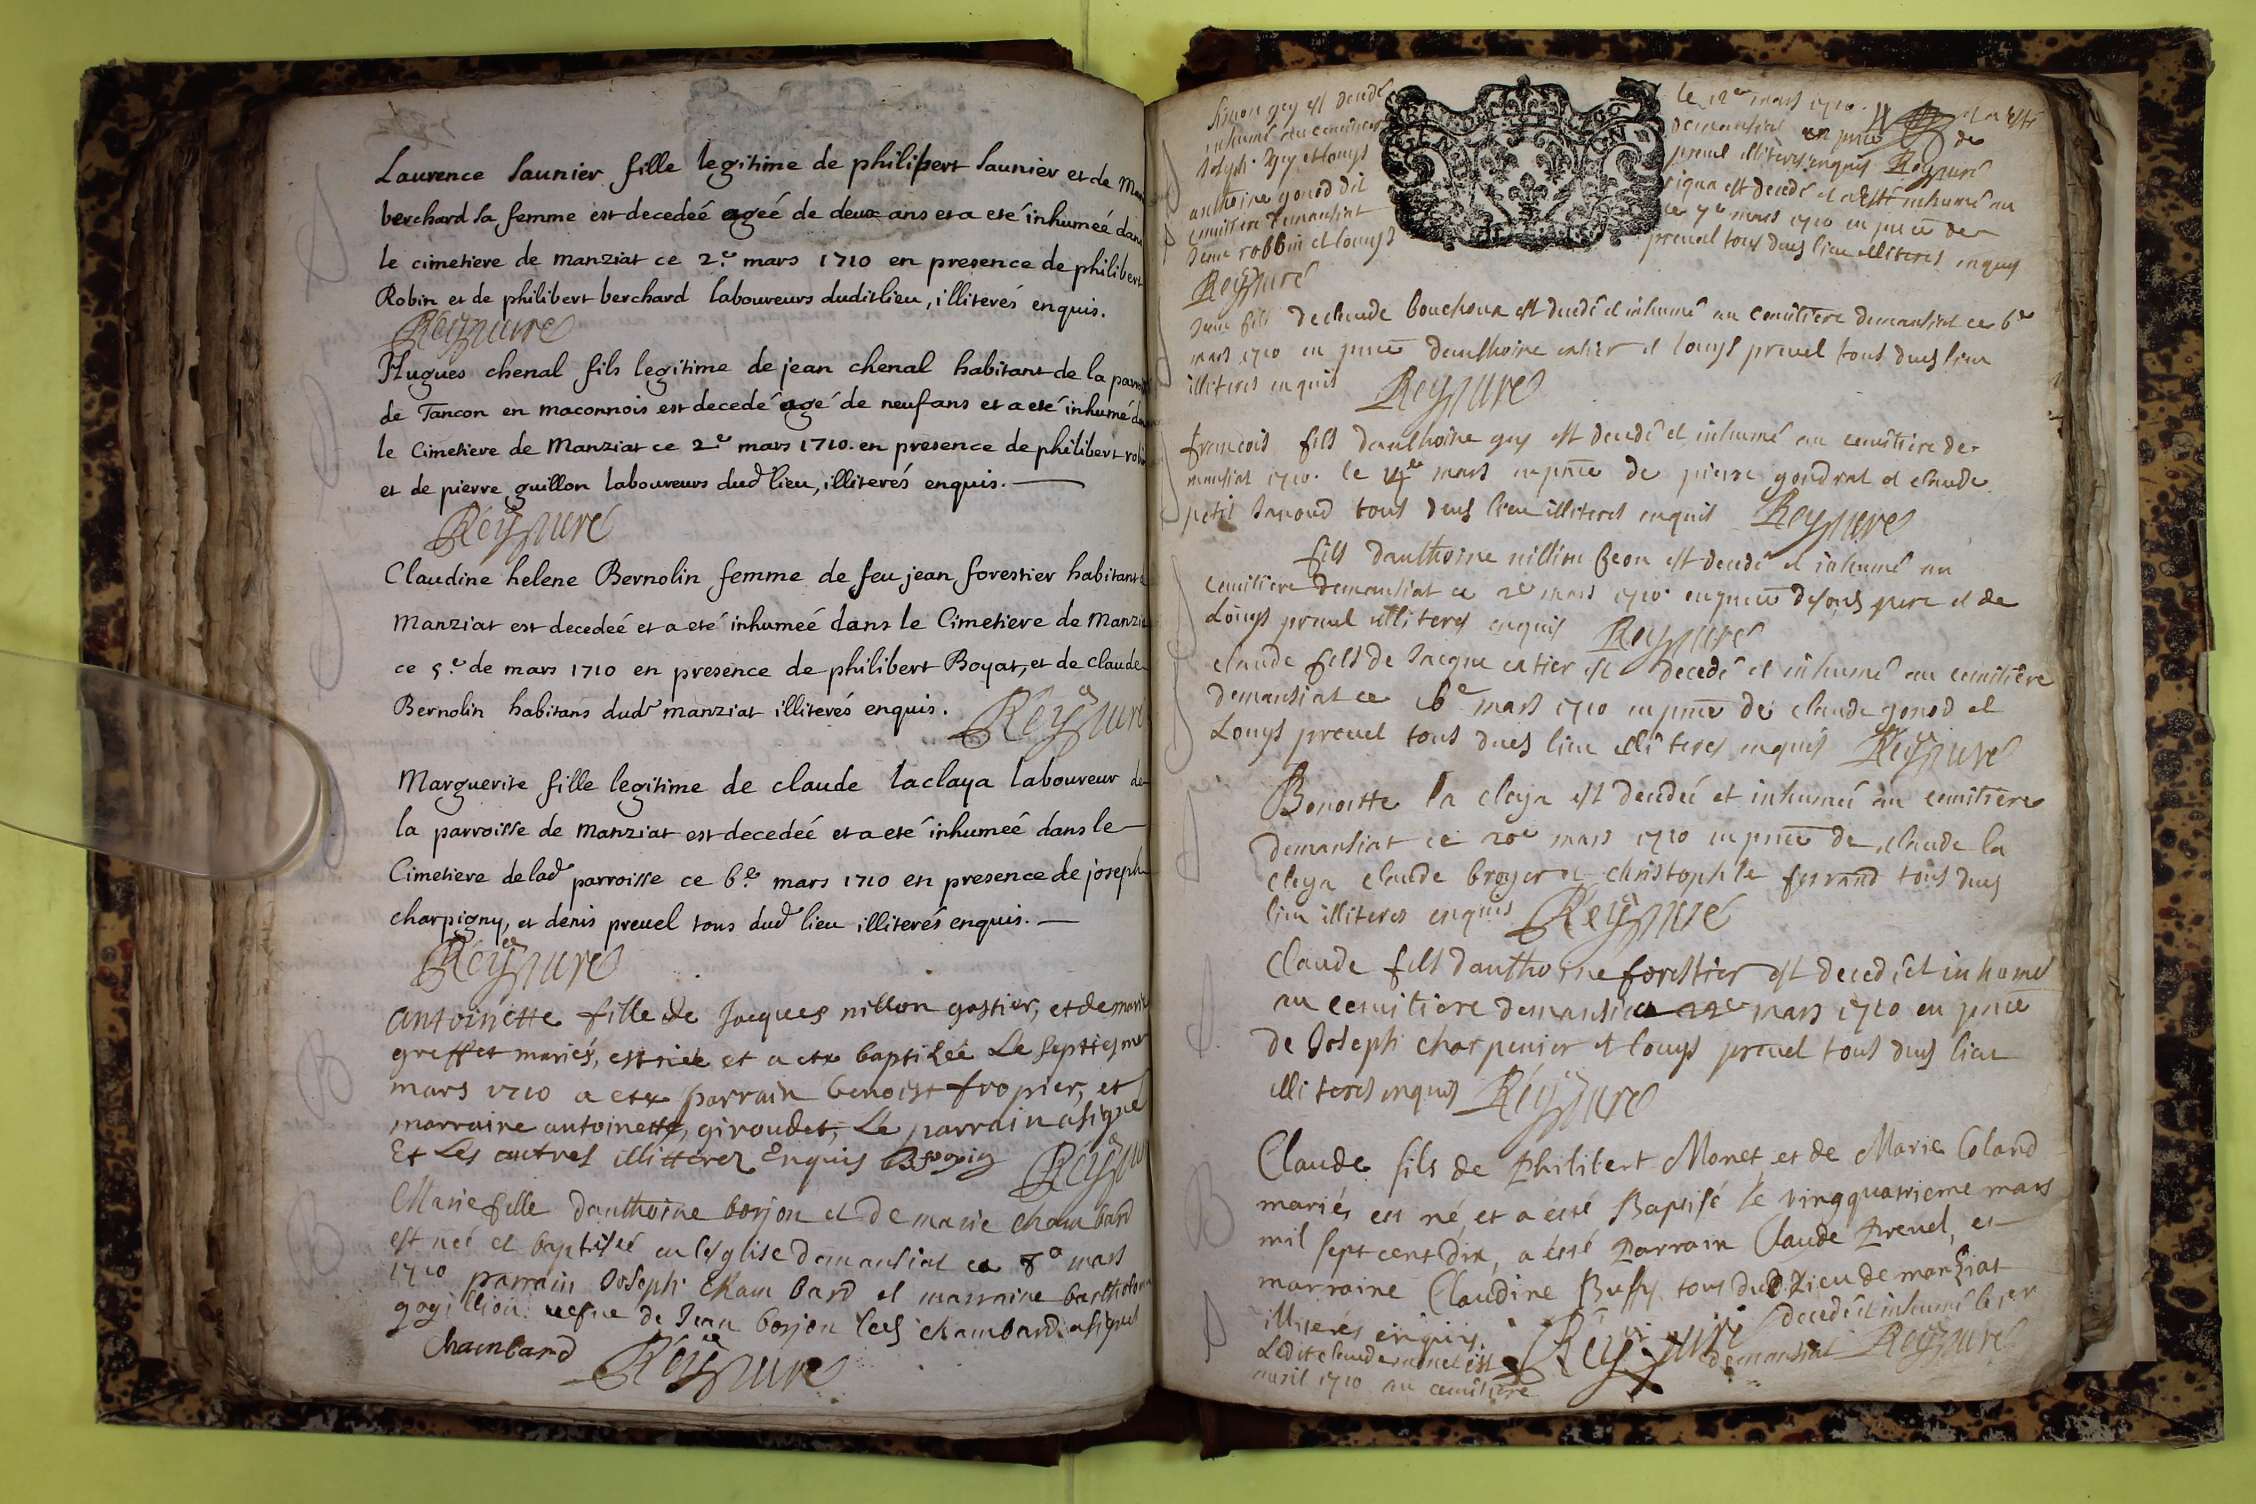 Laurence Saunier fille legitime de philibert Saunier et de
berchard sa femme est decedeé ageé de deux ans et a eté inhumeé dans
le cimetiere de manziat ce 2.e mars 1710 en presence de philibert
Robin et de philibert berchard laboureurs duditlieu, illiterés enquis.
Reyg curé
Hugues chenal fils legitime de jean chenal habitant de la
de Tancon en maconnois est decedé agé de neuf ans et a eté inhumé
le Cimetiere de Manziat ce 2.e mars 1710. en presence de philibert
et de pierre guillon laboureurs dud lieu, illiterés enquis.
Claudine helene Bernolin femme de feu jean forestier habitant
Manziat est decedeé et a eté inhumeé dans le Cimetiere de
ce 5.e de mars 1710 en presence de philibert Boyat, et de claude
Bernolin habitans dud manziat illiterés enquis.
Marguerite fille legitime de claude laclaya laboureur de
la parroisse de Manziat est decedeé et a eté inhumeé dans le
Cimetiere de lad parroisse ce 6.e mars 1710 en presence de joseph
charpigny, et denis prevel tous dud lieu illiterés enquis.
antoinette fille de Jacques nillon gastier, et de
greffet mariés, est née et a ete baptiséé Le septiesme
mars 1710 a ete parrain benoist fropier, et
marraine antoinette giroudet, Le parrain a signé
Et Les autres illitterez Enquis
Marie fille danthoine borjon et de marie chambard
est neé et baptiseé en leglise demansiat ce 8e mars
1710 parrain Joseph Chambard et marraine
vefue de Jean borjon led chambard a signé
Chambard
Simon gey est decedé le 12e mars 1710. et a esté
inhumé au
Joseph gey et louys prevel illiteres enquis
anthoine gonod dit est decedé et a esté inhumé au
cemitiere demansiat ce 7e mars 1710 en pnce de
Jeune robbin et louys prevel tous dud lieu illiteres enquis
Jean fils declaude bouchoux est decedé et inhumé au cemitiere demansiat ce 6e
mars 1710 en pnce danthoine catier et louys prevel tous dud lieu
illiteres enquis
francois fils danthoine gey est decedé et inhumé au cemitiere de
mansiat 1710. le 4e mars en pnce de pierre gondrat et claude
petit Janoud tous dud lieu illiteres enquis
fils danthoine est decedé et inhumé au
cemitiere demansiat ce 2e mars 1710 en pnce de son pere et de
Louys prevel illiteres enquis
claude fils de Jacque catier est decedé et inhumé au cemitiere
demansiat ce 6e mars 1710 en pnce de claude gonod et
Louys prevel tous dud lieu illiteres enquis
Benoitte la claya est decedeé et inhumeé au cemitiere
demansiat ce 20e mars 1710 en pnce de claude la
claya claude broyer et christophle ferrand tous dud
lieu illiteres enquis
Claude fils danthoine forestier est decedé et inhumé
au cemitiere demansiat ce 22e mars 1710 en pnce
de Joseph charpenier et louys prevel tous dud lieu
illiteres enquis
Claude fils de Philibert Monet et de Marie Coland
mariés est né, et a esté Baptisé le vingquatrieme mars
mil sept cent dix, a ésté Parrain Claude Prevel, et
marraine Claudine Buffy tous dud Lieu de manziat
illiterés enquis.
Ledit claude monet est decedé et inhumé le 1er
avril 1710 au cemitiere demansiat